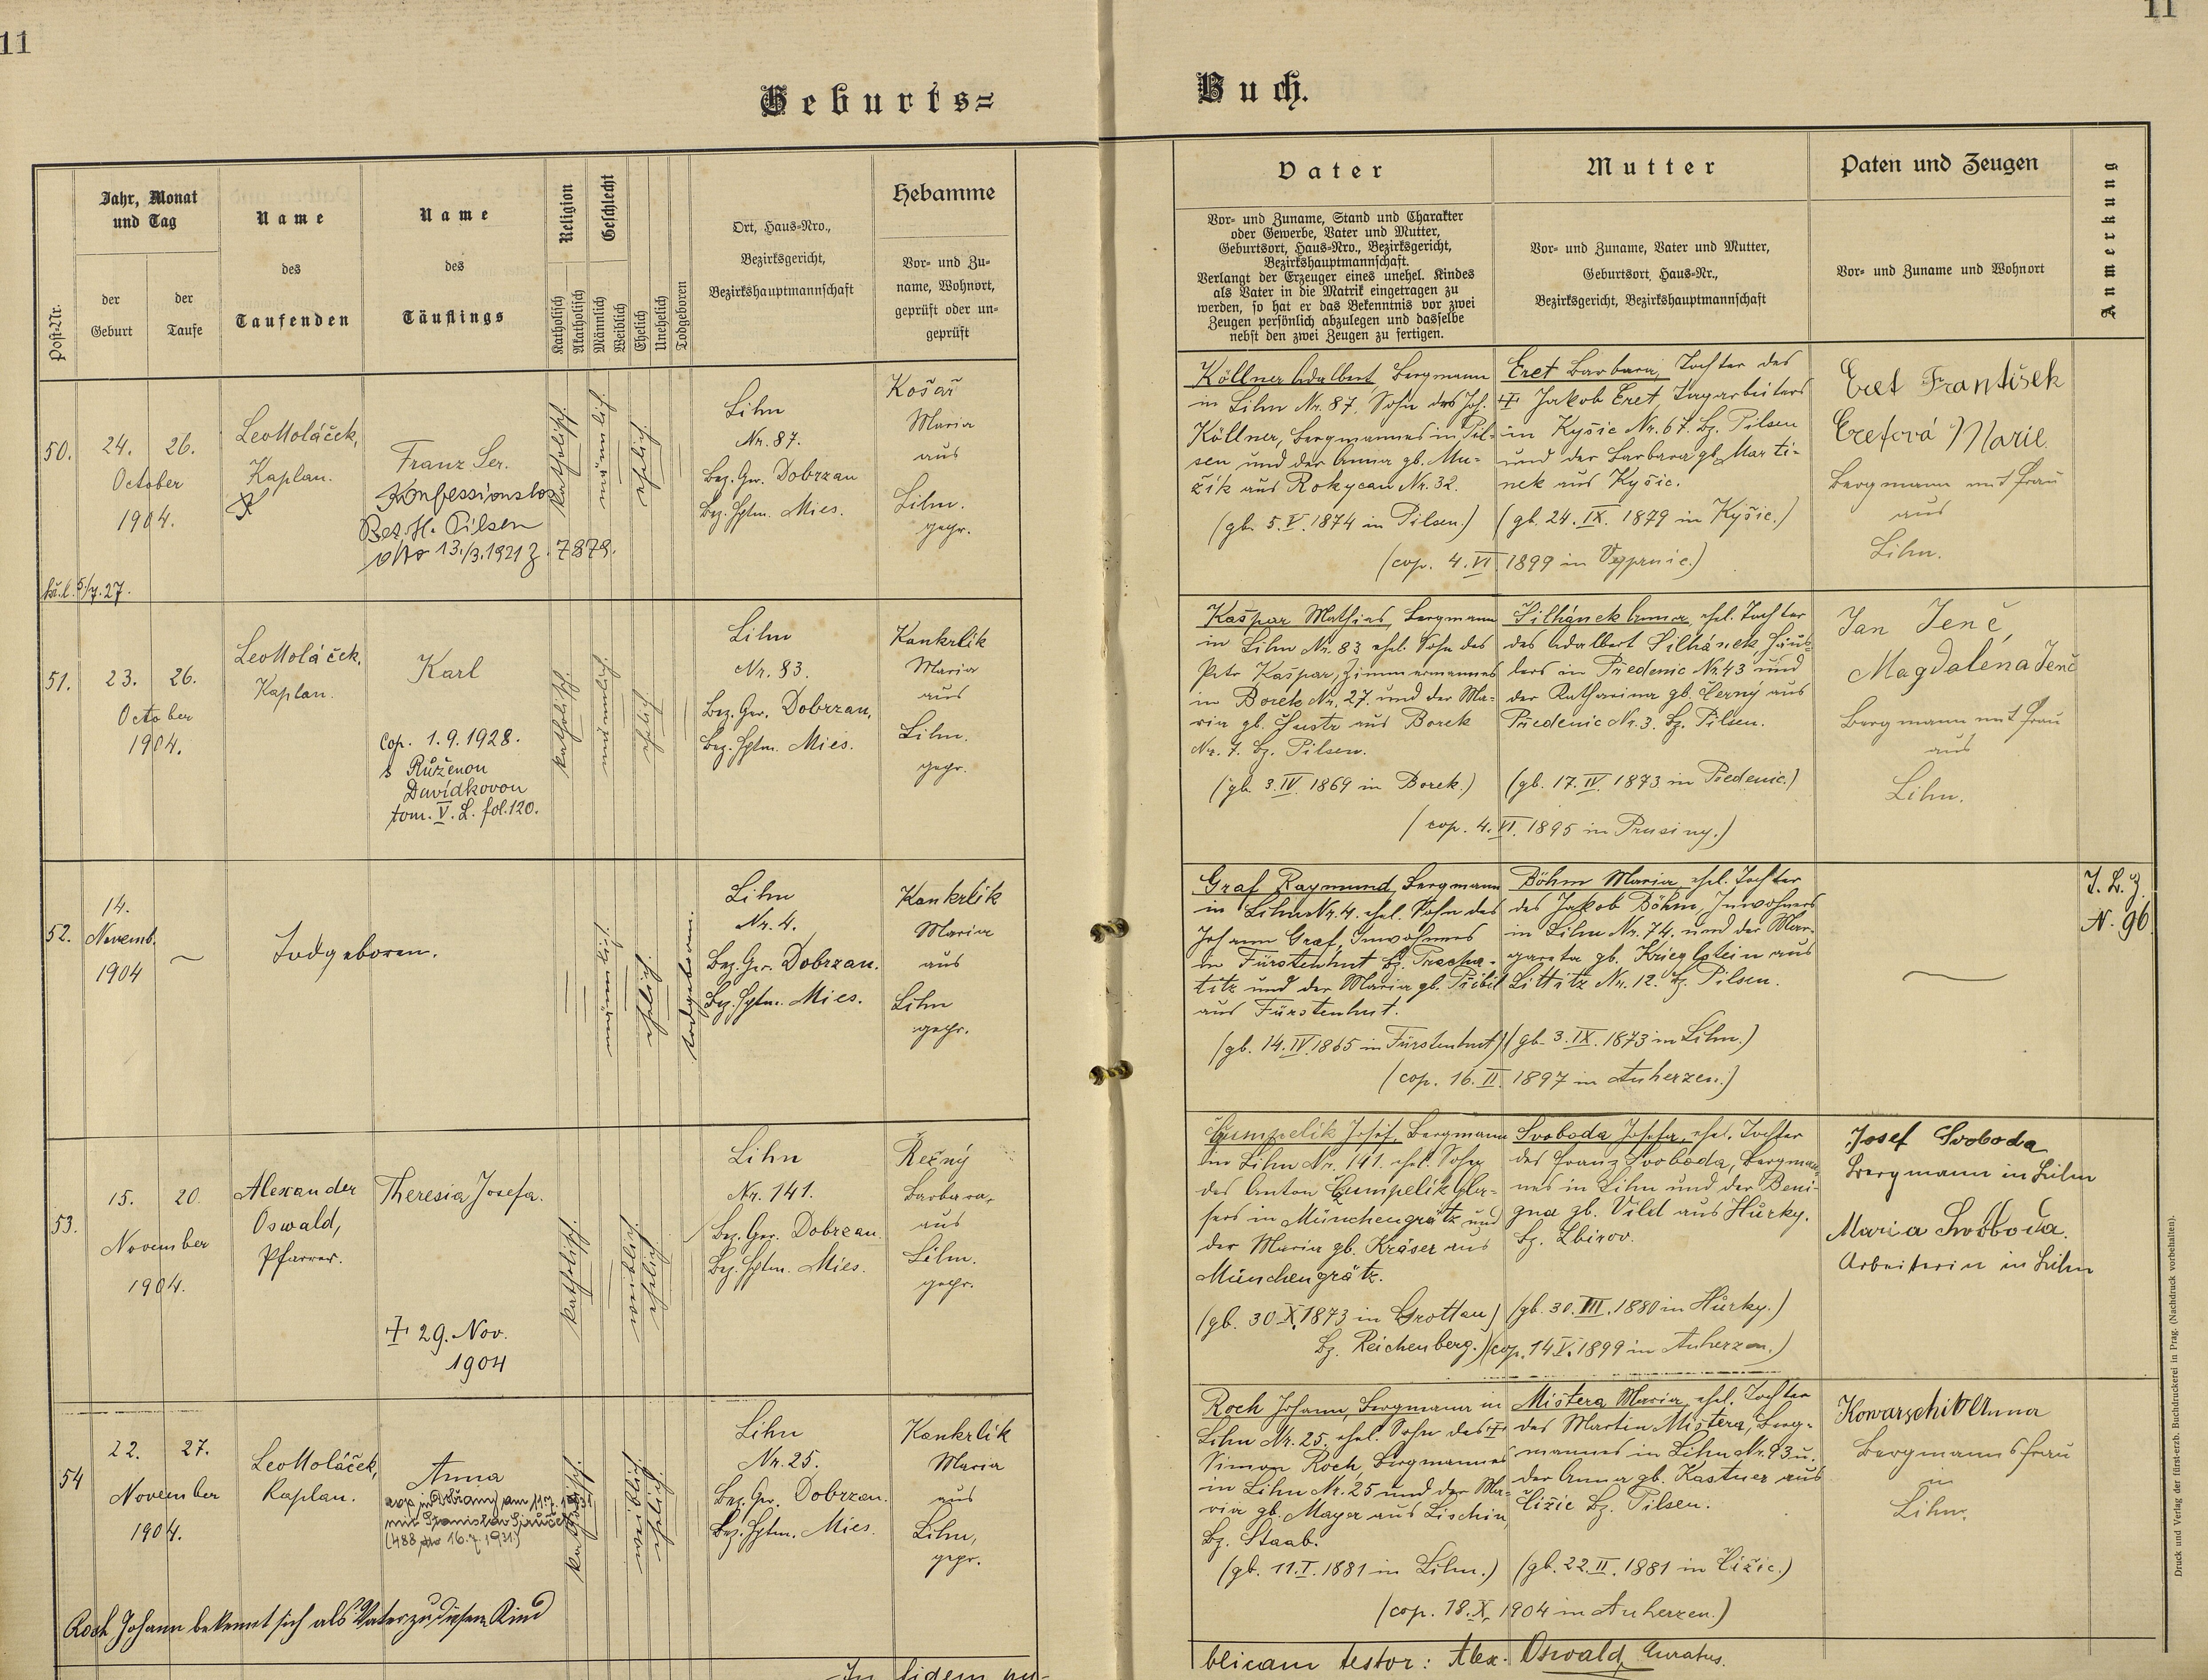 11
11
Geburts=
Buch.
Post-Nr.
Jahr, Monat
und Tag
der
Geburt
der
Taufe
Name
des
Taufenden
Name
des
Täuflings
Religion
Katholisch
Akatholisch
Geschlecht
Männlich
Weiblich
Ehelich
Unehelich
Todgeboren
Ort, Haus=Nro.,
Bezirksgericht,
Bezirkshauptmannschaft
Hebamme
Vor= und Zu=
name, Wohnort,
geprüft oder un=
geprüft
Vater
Vor= und Zuname, Stand und Charakter
oder Gewerbe, Vater und Mutter,
Geburtsort, Haus=Nro., Bezirksgericht,
Bezirkshauptmannschaft.
Verlangt der Erzeuger eines unehel. Kindes
als Vater in die Matrik eingetragen zu
werden, so hat er das Bekenntnis vor zwei
Zeugen persönlich abzulegen und dasselbe
nebst den zwei Zeugen zu fertigen.
Mutter
Vor= und Zuname, Vater und Mutter,
Geburtsort, Haus=Nr.,
Bezirksgericht, Bezirkshauptmannschaft
Paten und Zeugen
Vor= und Zuname und Wohnort
Anmerkung
50.
24.
26.
October
1904.
5/7.27.
Leo Moláček,
Kaplan.
Franz Ser.
Konfessionslos
Bez. H. Pilsen
dto 13./3.1921 Z. 7879.
katholisch.
männlich.
ehelich.
Lihn
Nr. 87.
Bez. Ger. Dobrzan
Bez. Hptm. Mies.
Košař
Maria
aus
Lihn.
gepr.
Köllner Adalbert, Bergmann
in Lihn Nr. 87, Sohn des Joh.
Köllner, Bergmannes in Pil-
sen und der Anna gb. Mu-
žík aus Rokycan Nr. 32.
(gb. 5. V. 1874 in Pilsen.)
Eret Barbara, Tochter des
† Jakob Eret, Tagarbeiters
in Kyšic Nr. 67. Bz. Pilsen
und der Barbara gb. Marti-
nek aus Kyšic.
(gb. 24. IX. 1879 in Kyšic.)
(cop. 4. VI. 1899 in Veyprnic.)
Eret František
Eretová Marie
Bergmann mit Frau
aus
Lihn.
51.
23.
26.
October
1904.
Leo Moláček,
Kaplan.
Karl
Cop. 1.9.1928.
s Růženou
Davídkovou
tom. V. L. fol. 120.
katholisch.
männlich.
ehelich
Lihn
Nr. 83.
Bez. Ger. Dobrzan,
Bez. Hptm. Mies.
Kankrlik
Maria
aus
Lihn.
gepr.
Kašpar Mathias, Bergmann
in Lihn Nr. 83 ehel. Sohn des
Petr Kašpar, Zimmermannes
in Borek Nr. 27. und der Ma-
ria gb. Šustr aus Borek
Nr. 7. Bz. Pilsen.
(gb. 3. IV. 1869 in Borek.)
Silhánek Anna, ehel. Tochter
des Adalbert Silhánek, Häus-
lers in Předenic Nr. 43 und
der Katharina gb. Černý aus
Předenic Nr. 3. Bz. Pilsen.
(gb. 17. IV. 1873 in Předenic.)
(cop. 4. VI. 1895 in Prusiny.)
Jan Jenč,
Magdaléna Jenč
Bergmann mit Frau
aus
Lihn.
52.
14.
Novemb.
1904
Todgeboren.
männlich.
ehelich.
todgeboren.
Lihn
Nr. 4.
Bez. Ger. Dobrzan.
Bez. Hptm. Mies.
Kankrlik
Maria
aus
Lihn
gepr.
Graf Raymund, Bergmann
in Lihn Nr. 4. ehel. Sohn des
Johann Graf, Inwohners
in Fürstenhut Bz. Pracha-
titz und der Maria gb. Přibil
aus Fürstenhut.
(gb. 14. IV. 1865 in Fürstenhut)
Böhm Maria, ehel. Tochter
des Jakob Böhm, Inwohners
in Lihn Nr. 74. und der Mar-
gareta gb. Krieglstein aus
Littitz Nr. 12. Bz. Pilsen.
(gb. 3. IX. 1873 in Lihn.)
(cop. 16. II. 1897 in Auherzen.)
N. 96
53.
15.
20.
November
1904.
Alexander
Oswald,
Pfarrer.
Theresia Josefa.
† 29. Nov.
1904
katholisch.
weiblich
ehelich
Lihn
Nr. 141.
Bez. Ger. Dobrzan.
Bez. Hptm. Mies.
Řezný
Barbara,
aus
Lihn.
gepr.
Gumpelik Josef, Bergmann
in Lihn Nr. 141. ehel. Sohn
des Anton Gumpelik Gla-
sers in Münchengrätz und
der Maria gb. Kráser aus
Münchengrätz.
(gb. 30. X. 1873 in Grottau)
Bz. Reichenberg.)
Svoboda Josefa, ehel. Tochter
des Franz Svoboda, Bergman-
nes in Lihn und der Beni-
gna gb. Vild aus Hůrky.
Bz. Zbirov.
(gb. 30. III. 1880 in Hůrky.)
(cop. 14. V. 1899 in Auherzen.)
Josef Svoboda
Bergmann in Lihn
Maria Svoboda.
Arbeiterin in Lihn
54
22.
27.
November
1904.
Leo Moláček,
Kaplan.
Anna
(488 dto 16.7.1931)
katholisch.
weiblich
ehelich
Lihn
Nr. 25.
Bez. Ger. Dobrzan.
Bez. Hptm. Mies.
Kankrlik
Maria
aus
Lihn,
gepr.
Roch Johann, Bergmann in
Lihn Nr. 25. ehel. Sohn des †
Simon Roch, Bergmannes
in Lihn Nr. 25 und der Ma-
ria gb. Mayer aus Lischin,
Bz. Staab.
(gb. 11. I. 1881 in Lihn.)
Mištera Maria, ehel. Tochter
des Martin Mištera, Berg-
mannes in Lihn Nr. 93 u.
der Anna gb. Kastner aus
Čižic Bz. Pilsen.
(gb. 22. II. 1881 in Čižic.)
(cop. 18. X. 1904 in Auherzen.)
Kowarschik Anna
Bergmannsfrau
in
Lihn.
Roch Johann bekennt sich als Vater zu diesem Kind
In fidem pu-
blicam testor: Alex. Oswald, Curatus.
Druck und Verlag der fürst-erzb. Buchdruckerei in Prag. (Nachdruck vorbehalten).